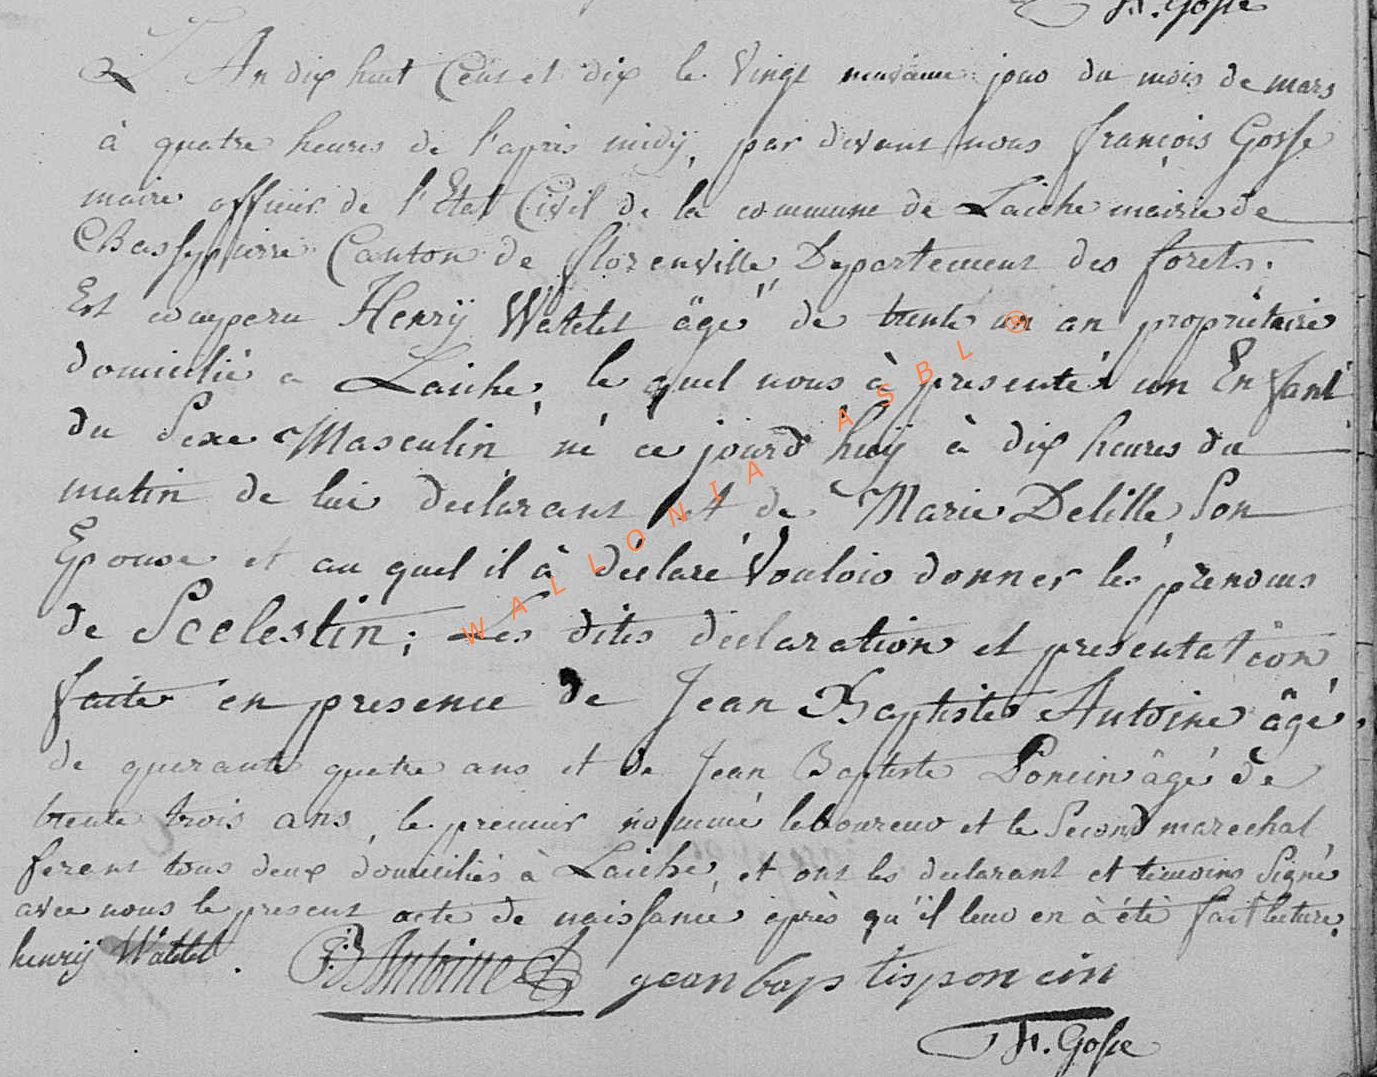 fr. Gosse
L'An dix huit Cent et dix le Vingt neuvième jour du mois de mars
à quatre heures de l'après midÿ, par devant nous françois Gosse
maire officier de l'Etat Civil de la commune de Laiche mairie de
Chassepierre Canton de florenville, Departement des forets,
Est comparu Henrÿ Watelet âgé de trente un an propriétaire
domicilié a Laiche, le quel nous à presenté un Enfant
du Sexe Masculin né ce jourd'huÿ à dix heures du
matin de lui declarant et de Marie Delille Son
Epouse et au quel il à déclaré Vouloir donner les prenoms
de Scelestin; Les dites declaration et presentation
faite en presence de Jean Baptiste Antoine âgé
de querante quatre ans et de Jean Baptiste Poncin âgé de
trente trois ans, le premier nommé laboureur et le Second marechal
ferent tous deux domiciliés à Laiche, et ont les declarant et temoins Signé
avec nous le present acte de naissance après qu'il leur en à été fait lecture.
henrÿ Watelet. JB Antoine jean bap tis pon cin
fr. Gosse
WALLONIA ASBL ®